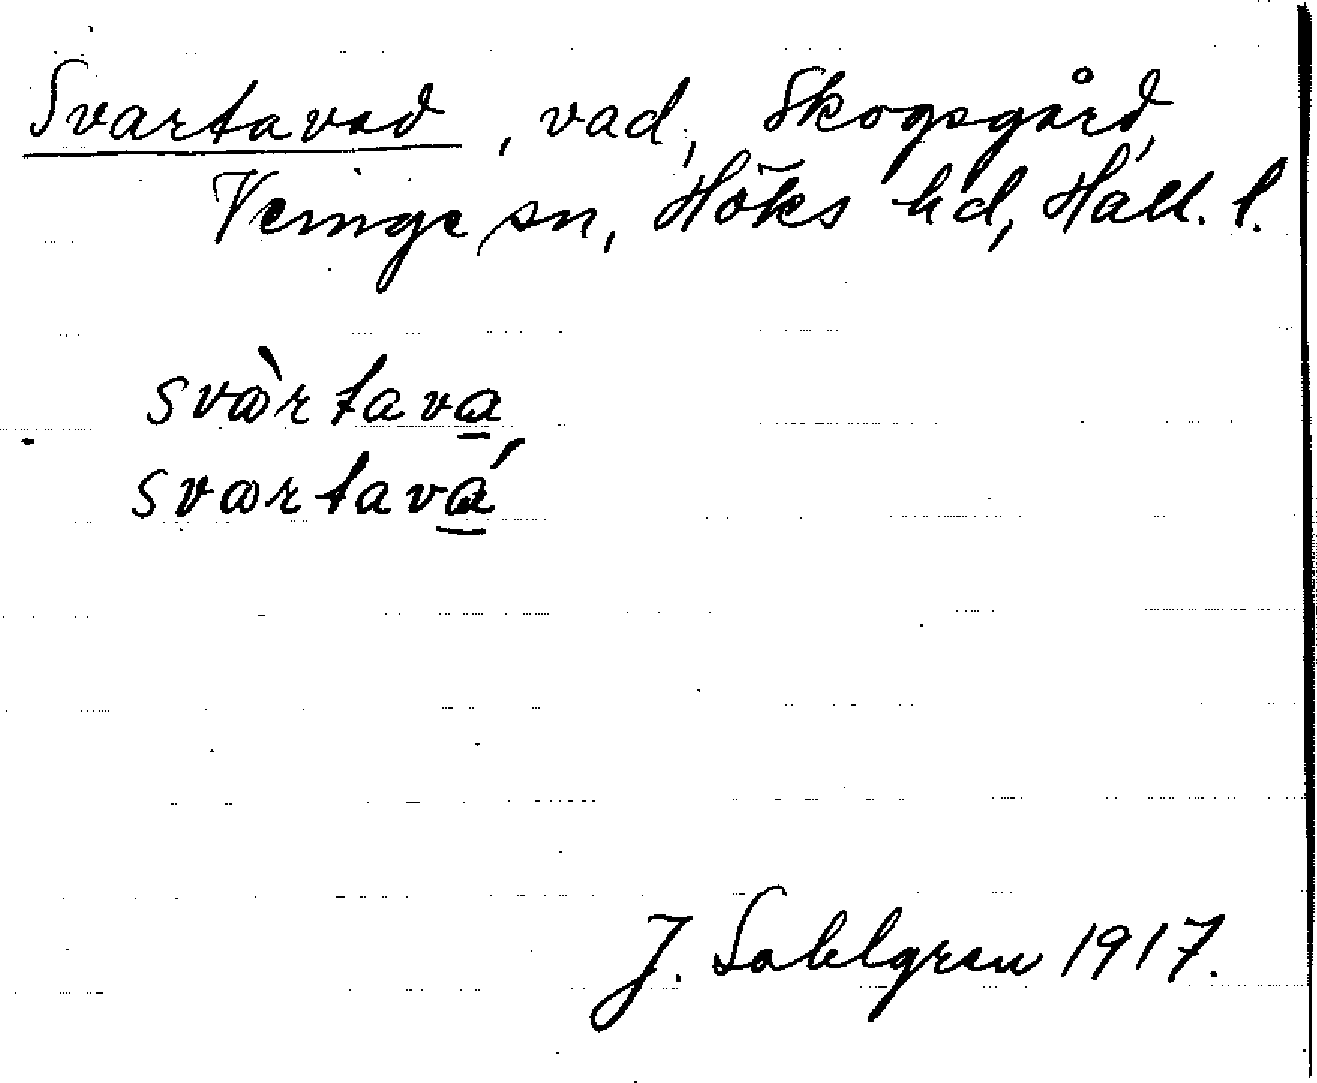 Svartavad, vad, Skogsgård,
Veinge sn, Höks hd, Hall. l.
svàrtava
svartavá
J. Sahlgren 1917.